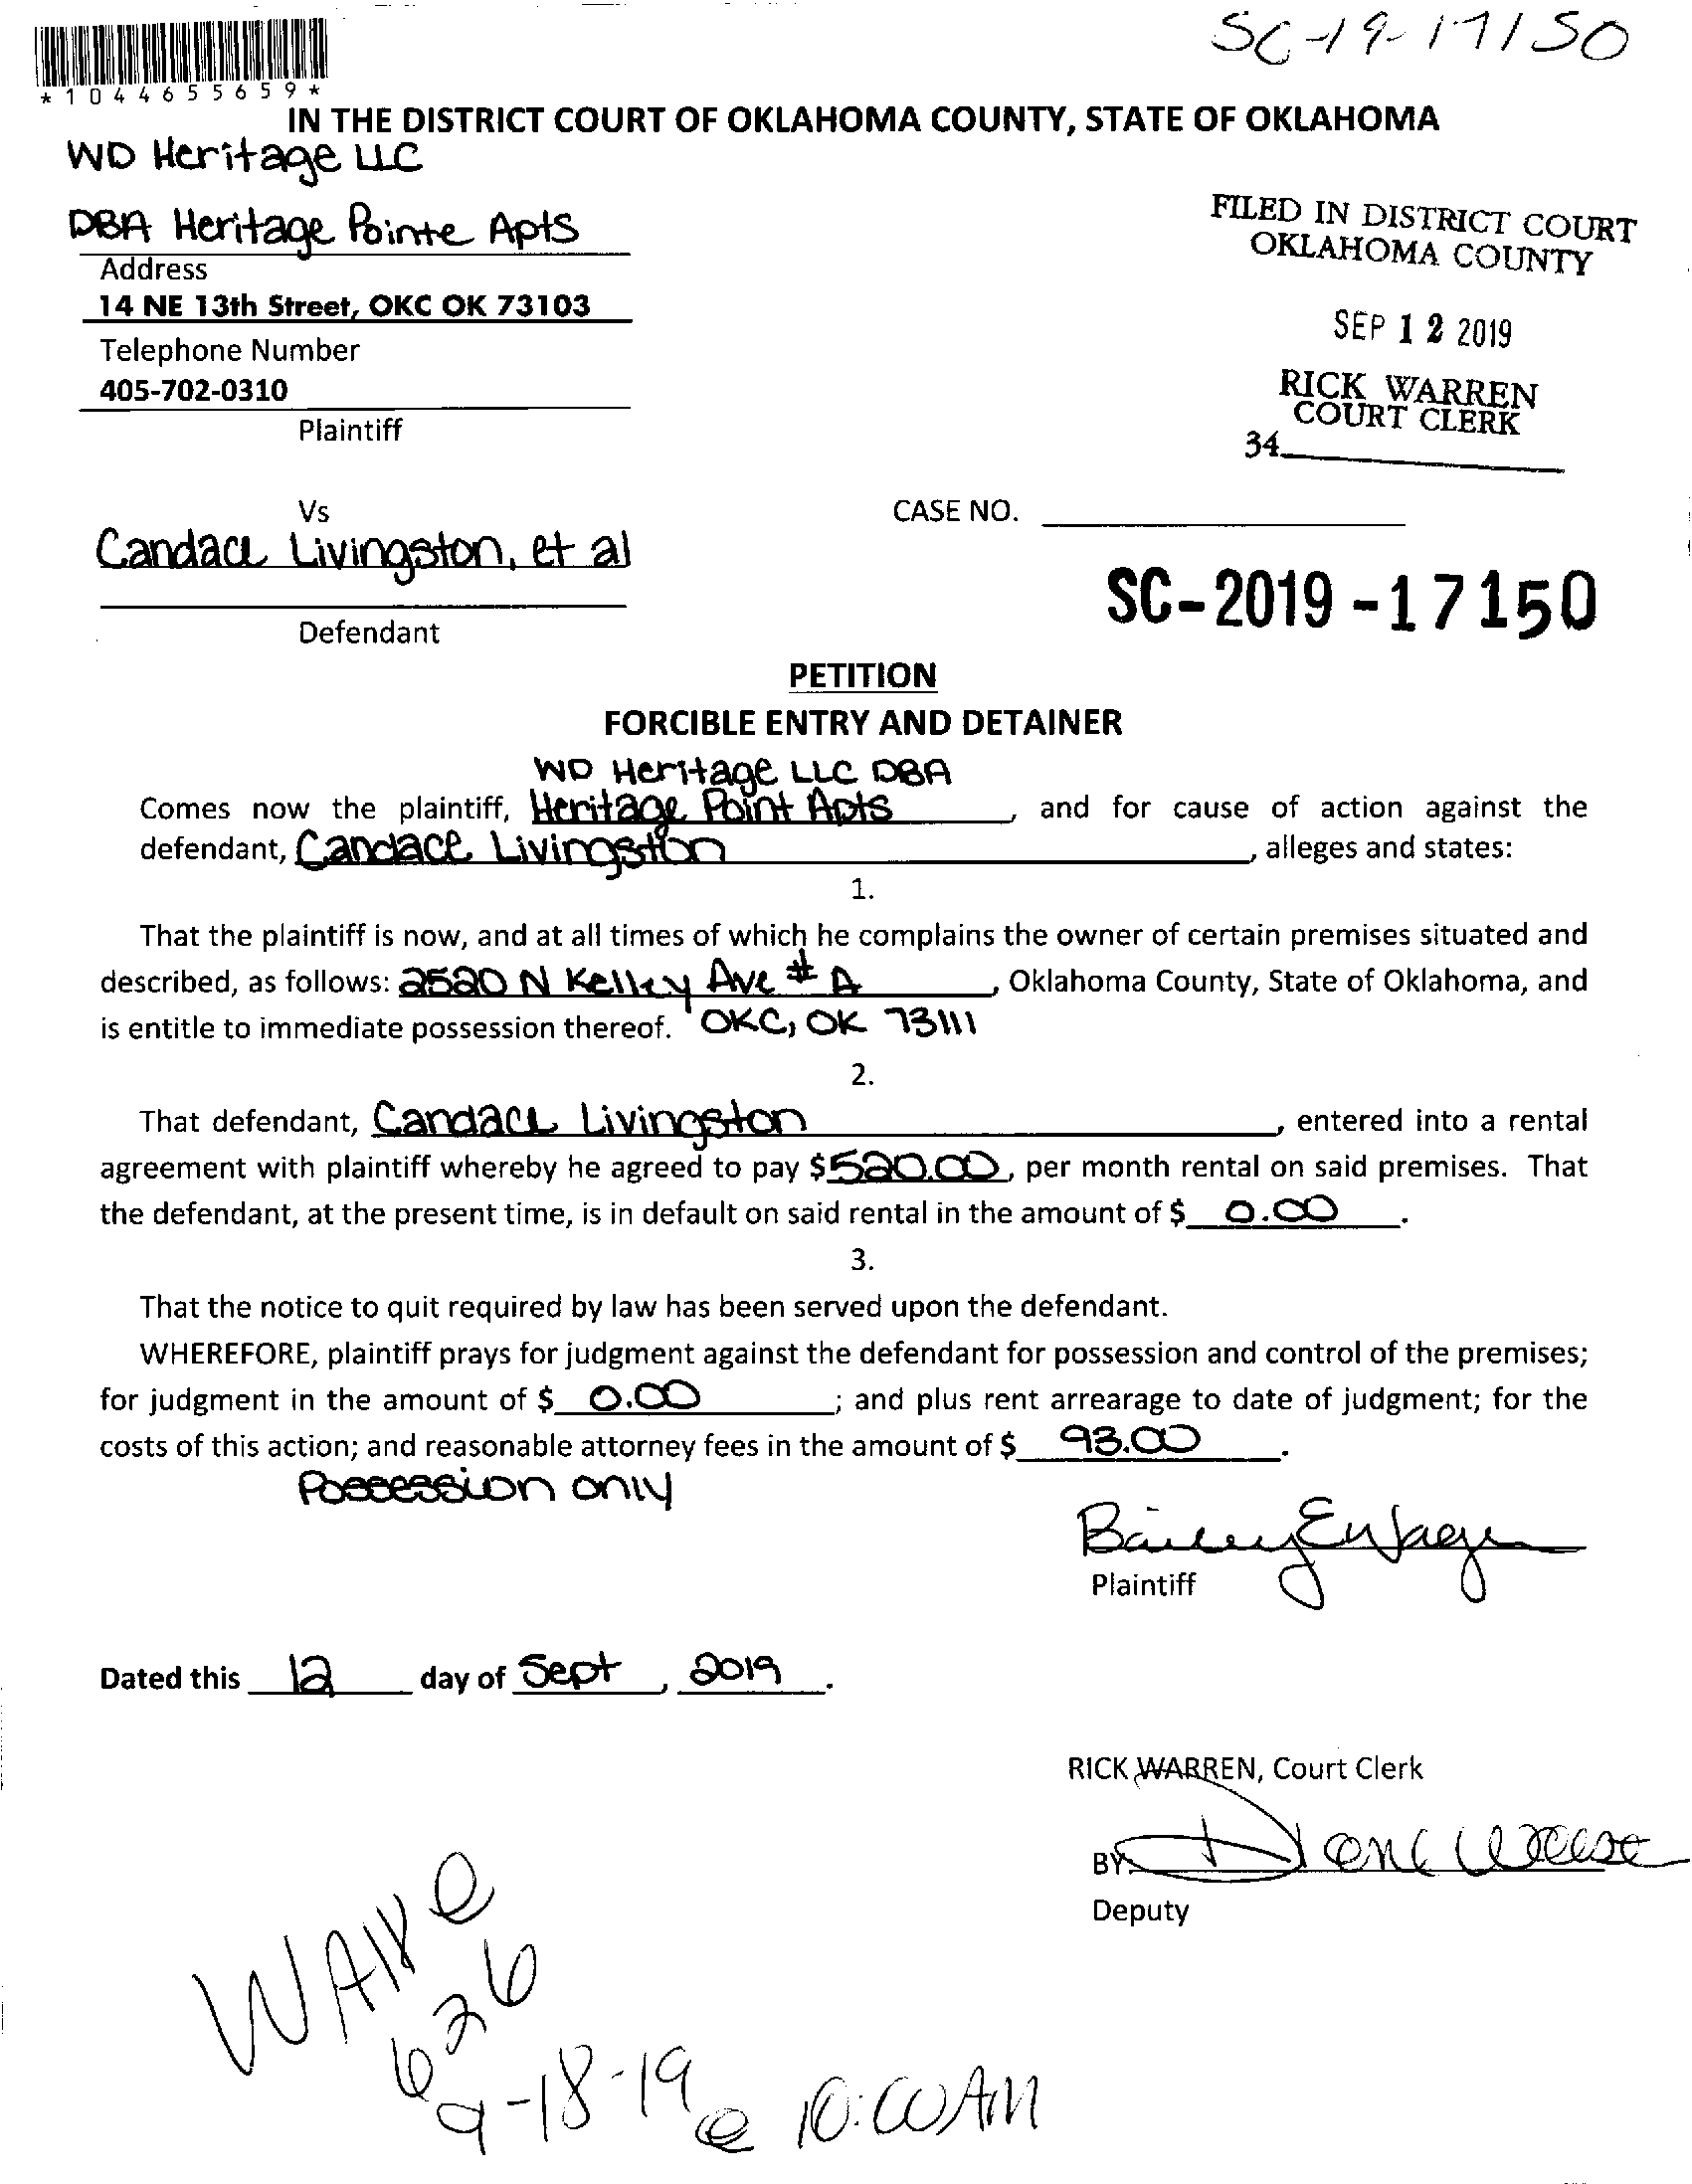 SC-19-17150
*1044655659*
IN THE DISTRICT COURT OF OKLAHOMA COUNTY, STATE OF OKLAHOMA
WD Heritage LLC
DBA Heritage Pointe Apts
Address
14 NE 13th Street, OKC OK 73103
Telephone Number
405-702-0310
Plaintiff
FILED IN DISTRICT COURT
OKLAHOMA COUNTY
SEP 12 2019
RICK WARREN
COURT CLERK
34
Vs
CASE NO.
Candace Livingston, et al
SC-2019-17150
Defendant
PETITION
FORCIBLE ENTRY AND DETAINER
WD Heritage LLC DBA
Comes now the plaintiff, Heritage Point Apts, and for cause of action against the
defendant, Candace Livingston, alleges and states:
1.
That the plaintiff is now, and at all times of which he complains the owner of certain premises situated and
described, as follows: 2520 N Kelley Ave # A, Oklahoma County, State of Oklahoma, and
is entitle to immediate possession thereof. OKC, OK 73111
2.
That defendant, Candace Livingston, entered into a rental
agreement with plaintiff whereby he agreed to pay $520.00, per month rental on said premises. That
the defendant, at the present time, is in default on said rental in the amount of $ 0.00.
3.
That the notice to quit required by law has been served upon the defendant.
WHEREFORE, plaintiff prays for judgment against the defendant for possession and control of the premises;
for judgment in the amount of $ 0.00; and plus rent arrearage to date of judgment; for the
costs of this action; and reasonable attorney fees in the amount of $ 93.00.
Possession only
Plaintiff
Dated this 12 day of Sept, 2019.
RICK WARREN, Court Clerk
BY
Deputy
WAIVE
626
9-18-19 @ 10:00AM